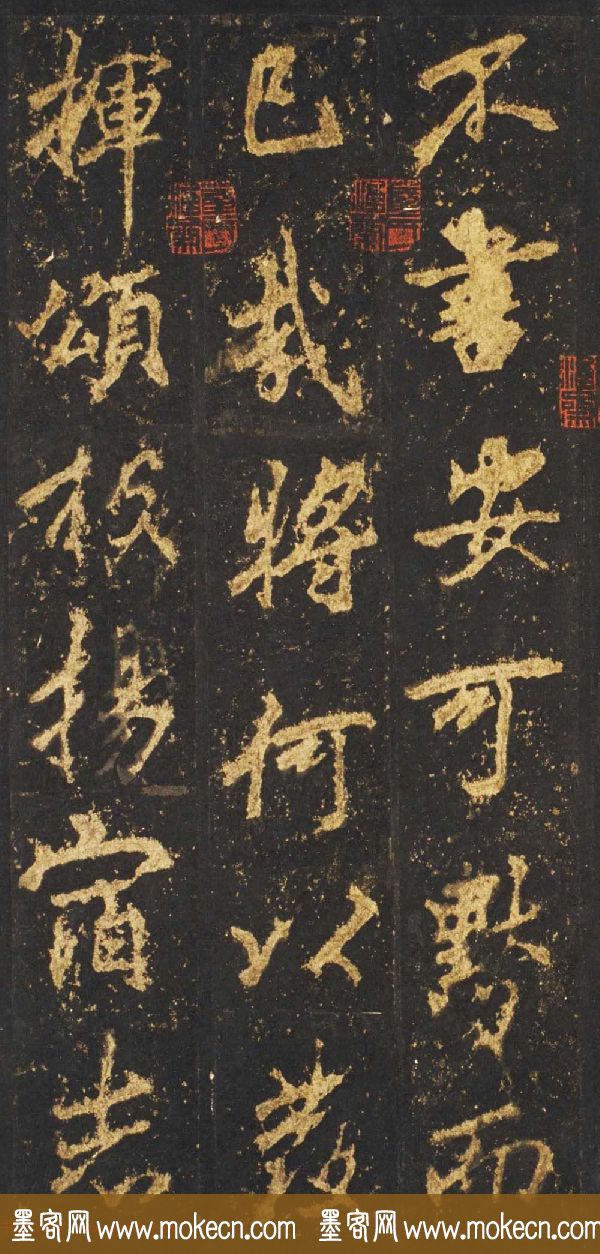 不書安可默而
已哉將何以發
揮頌揚宿
墨客网 www.mokecn.com 墨客网 www.mokecn.com